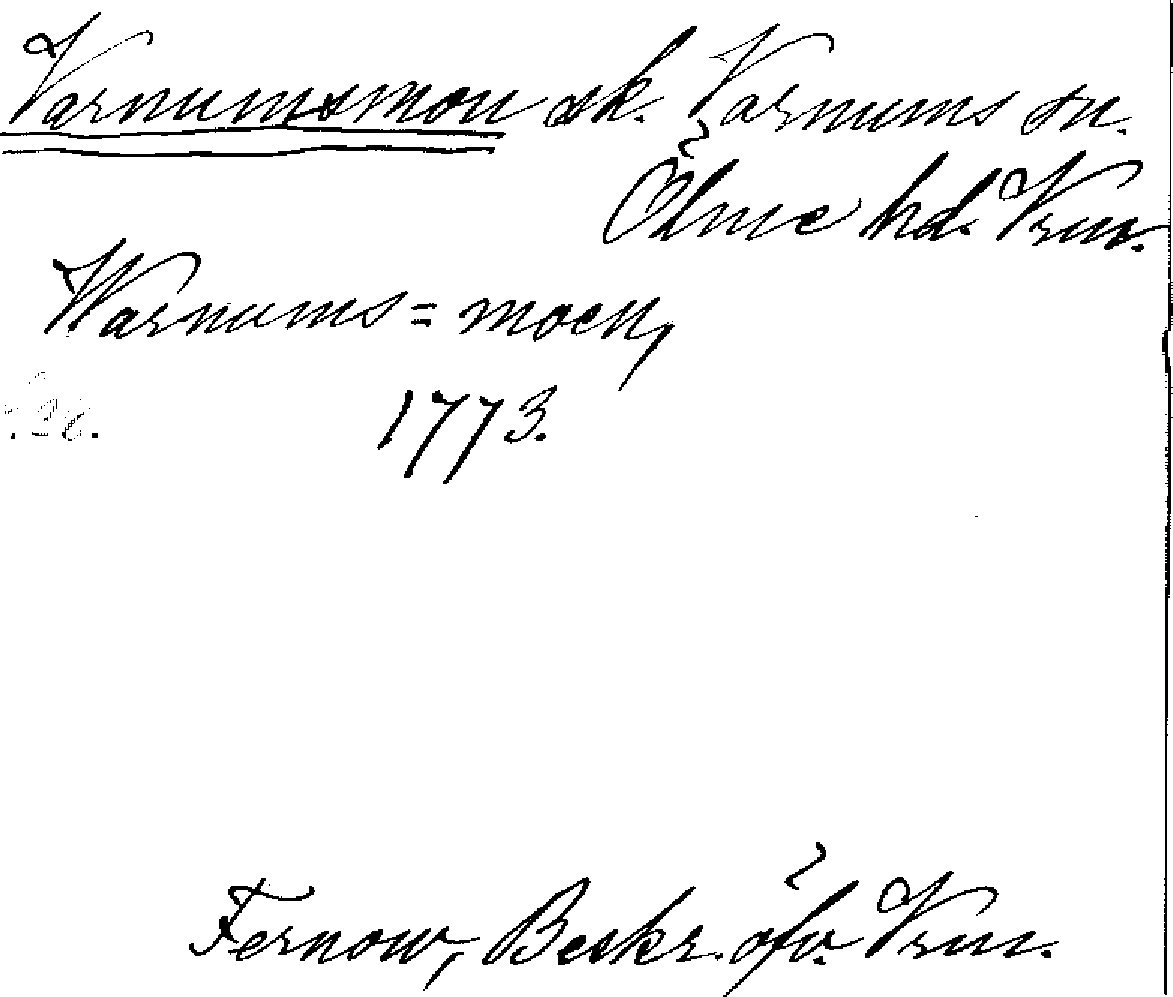 Varnumsmon sk. Varnums sn.
Ölme hd. Vrm.
Warnums=moen,
1773.
Fernow, Beskr. öfv. Vrm.